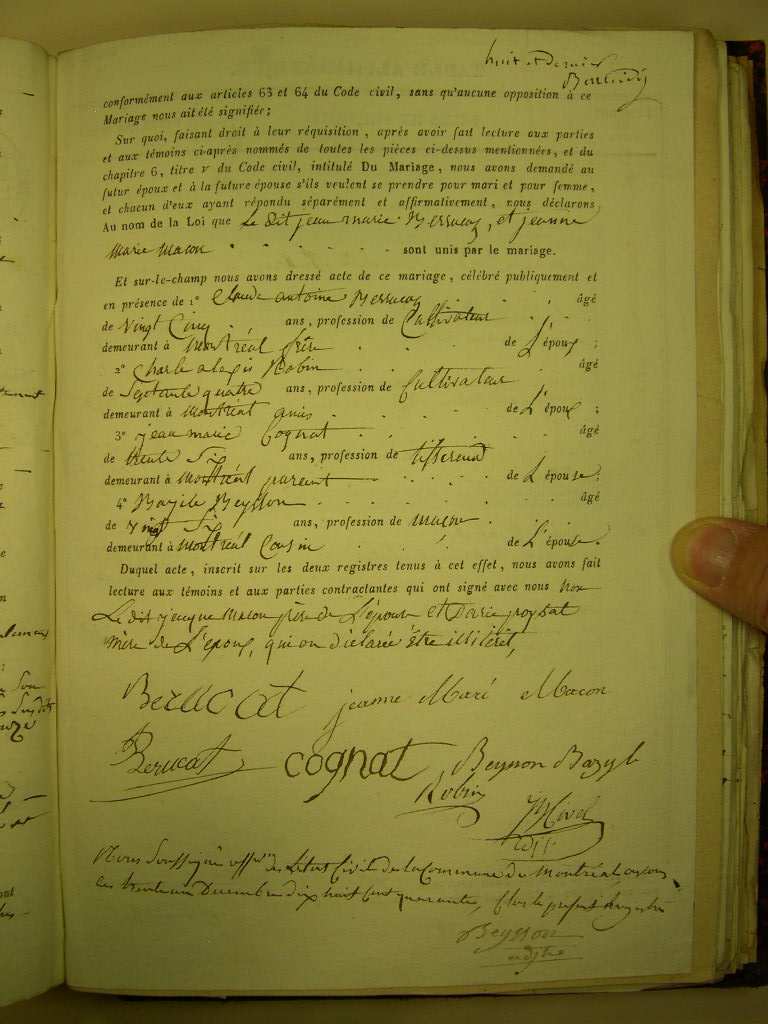 huit et dernier
conformément aux articles 63 et 64 du Code civil, sans qu'aucune opposition à ce
Mariage nous ait été signifiée;
Sur quoi, faisant droit à leur réquisition, après avoir fait lecture aux parties
et aux témoins ci-après nommés de toutes les pièces ci-dessus mentionnées, et du
chapitre 6, titre v du Code civil, intitulé Du Mariage, nous avons demandé au
futur époux et à la future épouse s'ils veulent se prendre pour mari et pour femme,
et chacun d'eux ayant répondu séparément et affirmativement, nous déclarons
Au nom de la Loi que Le dit jean marie Berrucaz, et jeanne
Marie Macon sont unis par le mariage.
Et sur-le-champ nous avons dressé acte de ce mariage, célébré publiquement et
en présence de 1° Claude antoine Berrucaz âgé
de Vingt Cinq ans, profession de Cultivateur
demeurant à Montréal frère de L'époux;
2° Charle alexis Robin âgé
de Septante quatre ans, profession de Cultivateur
demeurant à Montréal amis de L'époux;
3° jean marie Cognat âgé
de trente Six ans, profession de tisserand
demeurant à Montréal parent de L'épouse;
4° Bazile Beysson âgé
de vingt Six ans, profession de maçon
demeurant à Montréal Cousin de L'épouse.
Duquel acte, inscrit sur les deux registres tenus à cet effet, nous avons fait
lecture aux témoins et aux parties contractantes qui ont signé avec nous Non
Le dit jacque Macon père de L'épouse et
mère de L'époux, qui on déclaree être illiteret,
Berucat jeanne Marí Macon
Berucat cognat Beynon Bazyle
Robin
Nous Soussigné de L'état Civile de la Commune de Montréal avons
Ce trente un Decembre dix huit Cent quarante, Clos le présent Registre
Beysson